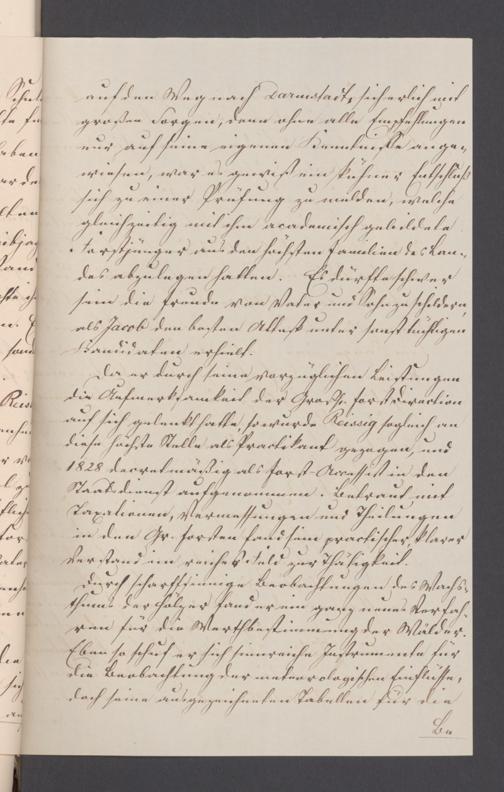 auf den Weg nach Darmstadt, sicherlich mit
großen Sorgen, denn ohne alle Empfehlungen
nur auf seine eigenen Kenntnisse ange-
wiesen, war es gewiß ein kühner Entschluß
sich zu einer Prüfung zu melden, welche
gleichzeitig mit ihm academisch gebildete
Forstjünger aus den höchsten Familien des Lan-
des abzulegen hatten. Es dürfte schwer
sein die Freude von Vater und Sohn zu schildern,
als Jacob den besten Attest unter sonst tüchtigen
Kandidaten erhielt.
Da er durch seine vorzüglichen Leistungen
die Aufmerksamkeit der Großh. Forstdirection
auf sich gelenkt hatte, so wurde Reissig sogleich an
diese höchste Stelle als Practikant gezogen, und
1828 decretmäßig als Forst-Accessist in den
Staatsdienst aufgenommen. Betraut mit
Taxationen, Vermessungen und Theilungen
in den Gr. Forsten fand sein practischer klarer
Verstand ein reiches Feld zur Thätigkeit.
Durch scharfsinnige Beobachtungen des Wachs-
thums der Hölzer fand er ein ganz neues Verfah-
ren für die Werthbestimmung der Wälder.
Eben so schuf er sich sinnreiche Instrumente für
die Beobachtung der meteorologischen Einflüsse,
doch seine ausgezeichneten Tabellen für die
Be